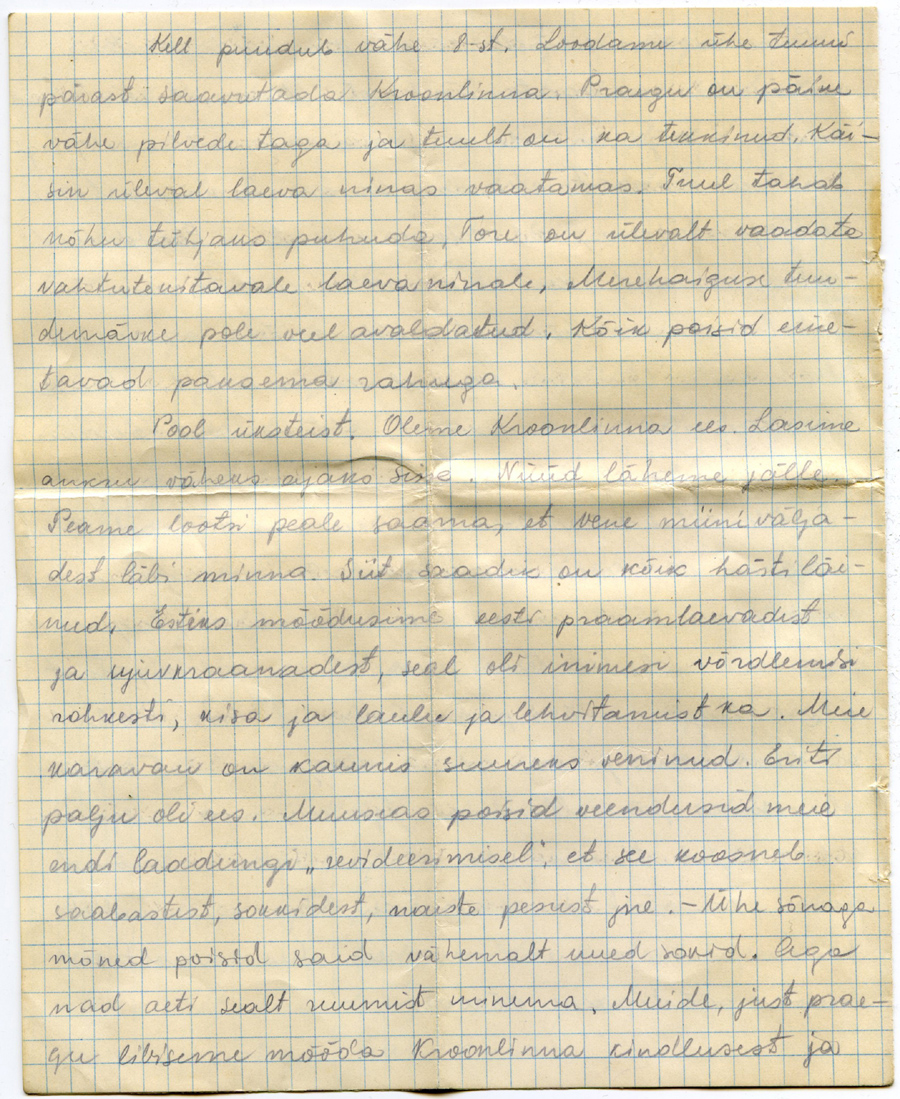 Kell puudub vähe 8-st. Loodame ühe tunni
pärast saavutada Kroonlinna. Praegu on päike
vähe pilvede taga ja tuult on ka tekkinud. Käi-
sin üleval laeva ninas vaatamas. Tuul tahab
kõhu tühjaks puhuda. Tore on ülevalt vaadata
vahututekitavale laevaninale. Merehaiguse tun-
demärke pole veel avaldatud. Kõik poisid eine-
tavad parajema rahuga.
Pool üksteist. Oleme Kroonlinna ees. Lasime
ankru väheks ajaks sisse. Nüüd läheme jälle.
Peame lootsi peale saama, et vene miinivälja-
dest läbi minna. Siit saadik on kõik hästi läi-
nud. Esteks möödusime eesti praamlaevadest
ja ujuvkraanadest, seal oli inimesi võrdlemisi
rohkesti, kisa ja laulu ja lehvitamist ka. Meie
karavan on kaunis suureks veninud. Eriti
palju oli ees. Muuseas poisid veendusid meie
endi laadungi „revideerimisel", et see koosneb
saabastest, sokkidest, naiste pesust jne. – Ühe sõnaga
mõned poisid said vähemalt uued sokid. Aga
nad aeti sealt ruumist minema. Muide, just prae-
gu libiseme mööda Kroonlinna kindlusest ja